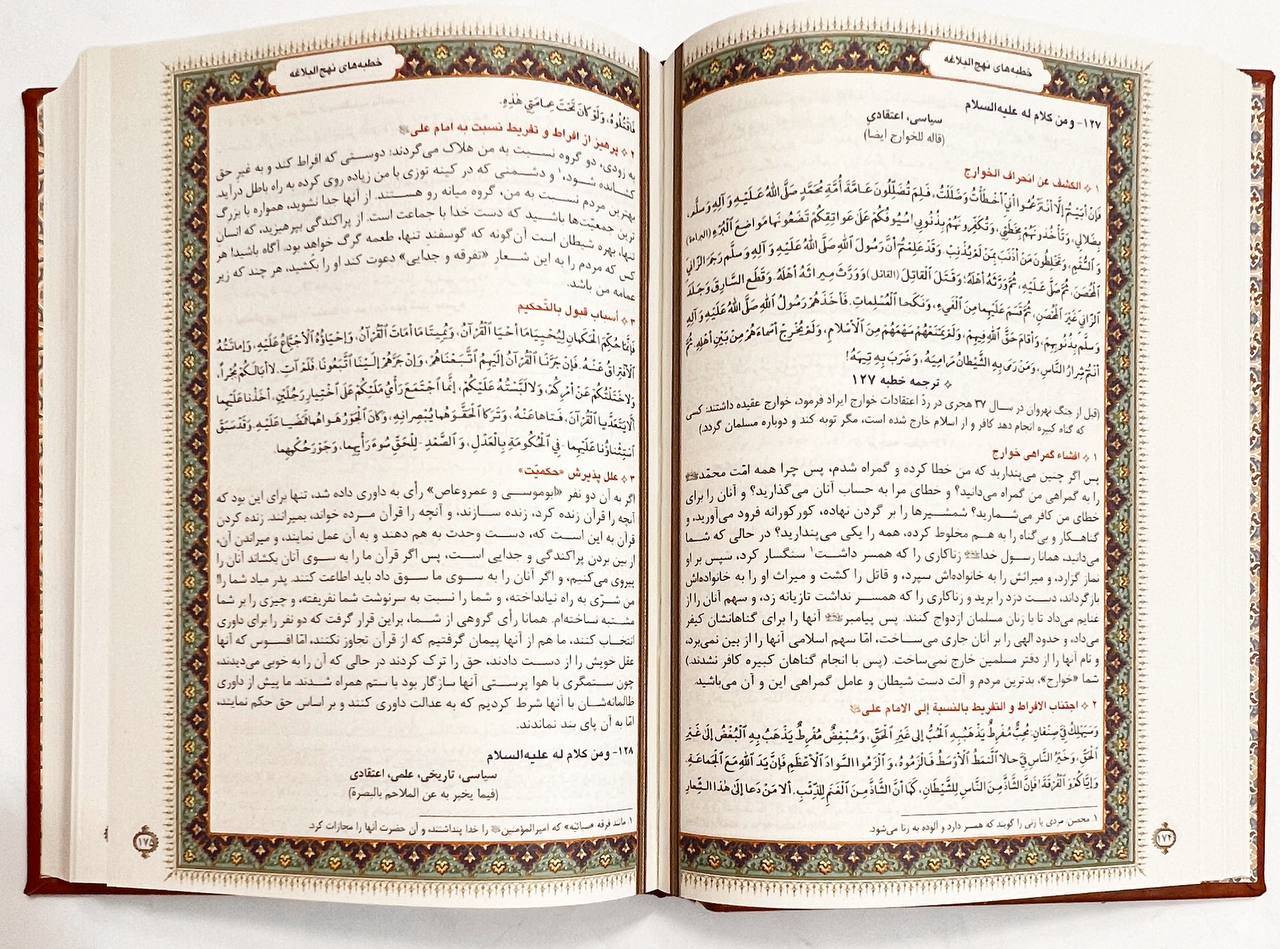 خطبه‌های نهج البلاغه
۱۲۷- ومن کلام له علیه‌السلام
سیاسی، اعتقادی
(قاله للخوارج ایضا)
۱ ❖ الکشف عن انحراف الخوارج
فَإِنْ أَبَيْتُمْ إِلَّا أَنْ تَزْعُمُوا أَنِّي أَخْطَأْتُ وَضَلَلْتُ، فَلِمَ تُضَلِّلُونَ عَامَّةَ أُمَّةِ مُحَمَّدٍ صَلَّى اللهُ عَلَيْهِ وَ آلِهِ وَسَلَّم،
بِضَلَالِي، وَتَأْخُذُونَهُمْ بِخَطَئِي، وَتُكَفِّرُونَهُمْ بِذُنُوبِي! سُيُوفُكُمْ عَلَى عَوَاتِقِكُمْ تَضَعُونَهَا مَوَاضِعَ الْبُرْءِ (البراءة)
وَ السُّقْمِ، وَتَخْلِطُونَ مَنْ أَذْنَبَ بِمَنْ لَمْ يُذْنِبْ. وَقَدْ عَلِمْتُمْ أَنَّ رَسُولَ اللهِ صَلَّى اللهُ عَلَيْهِ وَ آلِهِ وَسَلَّم رَجَمَ الزَّانِيَ
الْمُحْصَنَ، ثُمَّ صَلَّى عَلَيْهِ، ثُمَّ وَرَّثَهُ أَهْلَهُ؛ وَقَتَلَ الْقَاتِلَ (القاتل) وَوَرَّثَ مِيرَاثَهُ أَهْلَهُ. وَقَطَعَ السَّارِقَ وَجَلَدَ
الزَّانِيَ غَيْرَ الْمُحْصَنِ، ثُمَّ قَسَمَ عَلَيْهِمَا مِنَ الْفَيْءِ، وَنَكَحَا الْمُسْلِمَاتِ. فَأَخَذَهُمْ رَسُولُ اللهِ صَلَّى اللهُ عَلَيْهِ وَ آلِهِ
وَسَلَّم بِذُنُوبِهِمْ، وَأَقَامَ حَقَّ اللهِ فِيهِمْ، وَلَمْ يَمْنَعْهُمْ سَهْمَهُمْ مِنَ الْأِسْلَامِ، وَلَمْ يُخْرِجْ أَسْمَاءَهُمْ مِنْ بَيْنِ أَهْلِهِ. ثُمَّ
أَنْتُمْ شِرَارُ النَّاسِ، وَمَنْ رَمَى بِهِ الشَّيْطَانُ مَرَامِيَهُ، وَضَرَبَ بِهِ تِيهَهُ!
❖ ترجمه خطبه ۱۲۷
(قبل از جنگ نهروان در سال ۳۷ هجری در ردّ اعتقادات خوارج ایراد فرمود، خوارج عقیده داشتند: کسی
که گناه کبیره انجام دهد کافر و از اسلام خارج شده است، مگر توبه کند و دوباره مسلمان گردد.)
۱ ❖ افشاء گمراهی خوارج
پس اگر چنین می‌پندارید که من خطا کرده و گمراه شدم، پس چرا همه امّت محمّدﷺ
را به گمراهی من گمراه می‌دانید؟ و خطای مرا به حساب آنان می‌گذارید؟ و آنان را برای
خطای من کافر می‌شمارید؟ شمشیرها را بر گردن نهاده، کورکورانه فرود می‌آورید، و
گناهکار و بی‌گناه را به هم مخلوط کرده، همه را یکی می‌پندارید؟ در حالی که شما
می‌دانید، همانا رسول خداﷺ زناکاری را که همسر داشت۱ سنگسار کرد، سپس بر او
نماز گزارد، و میراثش را به خانواده‌اش سپرد، و قاتل را کشت و میراث او را به خانواده‌اش
بازگرداند، دست دزد را برید و زناکاری را که همسر نداشت تازیانه زد، و سهم آنان را از
غنایم می‌داد تا با زنان مسلمان ازدواج کنند. پس پیامبرﷺ آنها را برای گناهانشان کیفر
می‌داد، و حدود الهی را بر آنان جاری می‌ساخت، امّا سهم اسلامی آنها را از بین نمی‌برد،
و نام آنها را از دفتر مسلمین خارج نمی‌ساخت. (پس با انجام گناهان کبیره کافر نشدند)
شما «خوارج»، بدترین مردم و آلت دست شیطان و عامل گمراهی این و آن می‌باشید.
۲ ❖ اجتناب الافراط و التفریط بالنسبة إلى الامام علی
وَسَيَهْلِكُ فِيَّ صِنْفَانِ: مُحِبٌّ مُفْرِطٌ يَذْهَبُ بِهِ الْحُبُّ إِلَى غَيْرِ الْحَقِّ، وَمُبْغِضٌ مُفْرِطٌ يَذْهَبُ بِهِ الْبُغْضُ إِلَى غَيْرِ
الْحَقِّ، وَخَيْرُ النَّاسِ فِيَّ حَالاً النَّمَطُ الْأَوْسَطُ فَالْزَمُوهُ، وَ الْزَمُوا السَّوَادَ الْأَعْظَمَ فَإِنَّ يَدَ اللهِ مَعَ الْجَمَاعَةِ.
وَ إِيَّاكُمْ وَ الْفُرْقَةَ! فَإِنَّ الشَّاذَّ مِنَ النَّاسِ لِلشَّيْطَانِ، كَمَا أَنَّ الشَّاذَّ مِنَ الْغَنَمِ لِلذِّئْبِ. أَلَا مَنْ دَعَا إِلَى هٰذَا الشِّعَارِ
۱. محصن: مردی یا زنی را گویند که همسر دارد و آلوده به زنا می‌شود.
۱۷۴
خطبه‌های نهج البلاغه
فَاقْتُلُوهُ، وَلَوْ كَانَ تَحْتَ عِمَامَتِي هٰذِهِ.
۲ ❖ پرهیز از افراط و تفریط نسبت به امام علی
به زودی، دو گروه نسبت به من هلاک می‌گردند: دوستی که افراط کند و به غیر حق
کشانده شود،۱ و دشمنی که در کینه توزی با من زیاده روی کرده به راه باطل درآید.
بهترین مردم نسبت به من، گروه میانه رو هستند. از آنها جدا نشوید، همواره با بزرگ
ترین جمعیّت‌ها باشید که دست خدا با جماعت است. از پراکندگی بپرهیزید، که انسان
تنها، بهره شیطان است آن‌گونه که گوسفند تنها، طعمه گرگ خواهد بود. آگاه باشید! هر
کس که مردم را به این شعارِ «تفرقه و جدایی» دعوت کند او را بکُشید، هر چند که زیر
عمامه من باشد.
۳ ❖ أسباب قبول بالتّحکیم
فَإِنَّمَا حُكِّمَ الْحَكَمَانِ لِيُحْيِيَا مَا أَحْيَا الْقُرْآنُ، وَيُمِيتَا مَا أَمَاتَ الْقُرْآنُ، وَ إِحْيَاؤُهُ الْأِجْتِمَاعُ عَلَيْهِ، وَ إِمَاتَتُهُ
الْأِفْتِرَاقُ عَنْهُ. فَإِنْ جَرَّنَا الْقُرْآنُ إِلَيْهِمُ اتَّبَعْنَاهُمْ، وَإِنْ جَرَّهُمْ إِلَيْنَا اتَّبَعُونَا. فَلَمْ آتِ - لَا أَبَا لَكُمْ - بُجْراً،
وَلَا خَتَلْتُكُمْ عَنْ أَمْرِكُمْ، وَلَا لَبَّسْتُهُ عَلَيْكُمْ، إِنَّمَا اجْتَمَعَ رَأْيُ مَلَئِكُمْ عَلَى اخْتِيَارِ رَجُلَيْنِ، أَخَذْنَا عَلَيْهِمَا
أَلَّا يَتَعَدَّيَا الْقُرْآنَ، فَتَاهَا عَنْهُ، وَ تَرَكَا الْحَقَّ وَهُمَا يُبْصِرَانِهِ، وَكَانَ الْجَوْرُ هَوَاهُمَا فَمَضَيَا عَلَيْهِ. وَقَدْ سَبَقَ
اسْتِثْنَاؤُنَا عَلَيْهِمَا - فِي الْحُكُومَةِ بِالْعَدْلِ، وَ الصَّمْدِ - لِلْحَقِّ سُوءَ رَأْيِهِمَا، وَجَوْرَ حُكْمِهِمَا.
۳ ❖ علل پذیرش «حکمیّت»
اگر به آن دو نفر «ابوموسی و عمروعاص» رأی به داوری داده شد، تنها برای این بود که
آنچه را قرآن زنده کرد، زنده سازند، و آنچه را قرآن مرده خواند، بمیرانند. زنده کردن
قرآن به این است که، دست وحدت به هم دهند و به آن عمل نمایند، و میراندن آن،
از بین بردن پراکندگی و جدایی است، پس اگر قرآن ما را به سوی آنان بکشاند آنان را
پیروی می‌کنیم، و اگر آنان را به سوی ما سوق داد باید اطاعت کنند. پدر مباد شما را!
من شرّی به راه نیانداخته، و شما را نسبت به سرنوشت شما نفریفته، و چیزی را بر شما
مشتبه نساخته‌ام. همانا رأی گروهی از شما، براین قرار گرفت که دو نفر را برای داوری
انتخاب کنند، ما هم از آنها پیمان گرفتیم که از قرآن تجاوز نکنند، امّا افسوس که آنها
عقل خویش را از دست دادند، حق را ترک کردند در حالی که آن را به خوبی می‌دیدند،
چون ستمگری با هوا پرستی آنها سازگار بود با ستم همراه شدند. ما پیش از داوری
ظالمانه‌شان با آنها شرط کردیم که به عدالت داوری کنند و بر اساس حق حکم نمایند،
امّا به آن پای بند نماندند.
۱۲۸- ومن کلام له علیه‌السلام
سیاسی، تاریخی، علمی، اعتقادی
(فیما یخبر به عن الملاحم بالبصرة)
۱. مانند فرقه «سبائیّه» که امیرالمؤمنین را خدا پنداشتند، و آن حضرت آنها را مجازات کرد.
۱۷۵